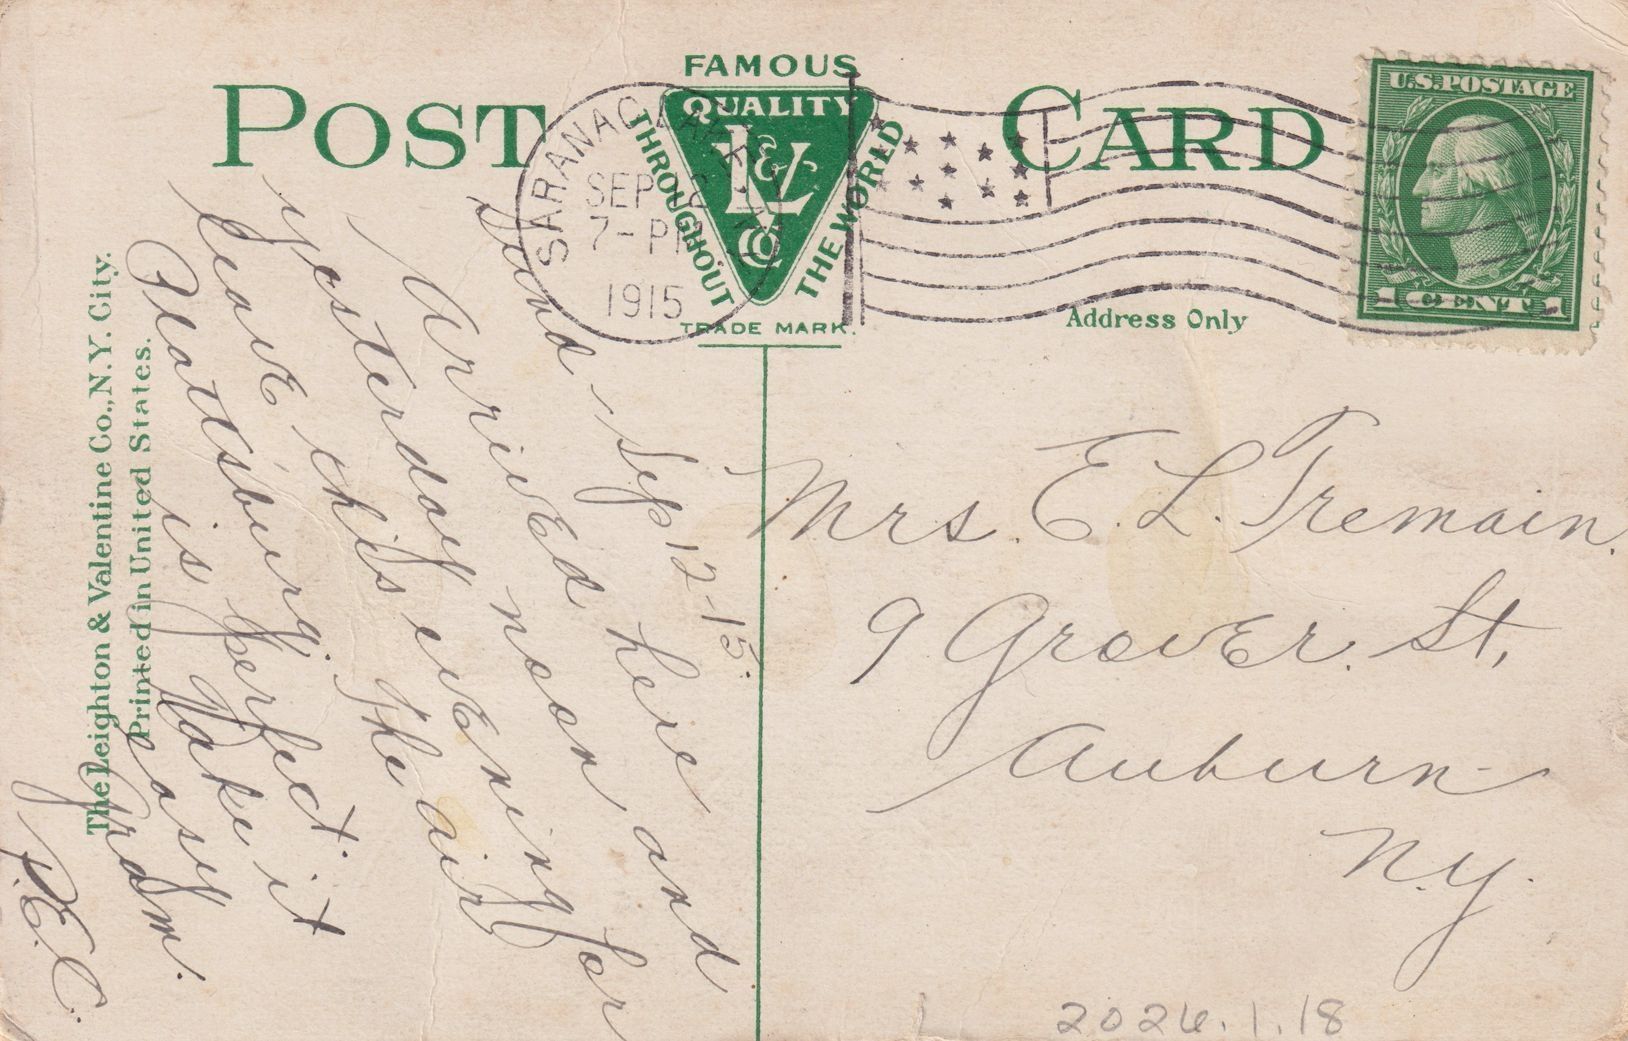 POST CARD
FAMOUS
QUALITY
THROUGHOUT
THE WORLD
L&V
CO
TRADE MARK.
SARANAC LAKE
SEP 12
7-PM
1915
U.S. POSTAGE
1 CENT 1
Address Only
The Leighton & Valentine Co., N.Y. City.
Printed in United States.
Sep 12-15.
Arrived here
yesterday noon and
leave this evening for
Plattsburg. The air
is perfect.
Take it
easy
Gram.
P.E.C.
Mrs. E. L. Tremain.
9 Grover. St,
Auburn
N.Y.
2024.1.18